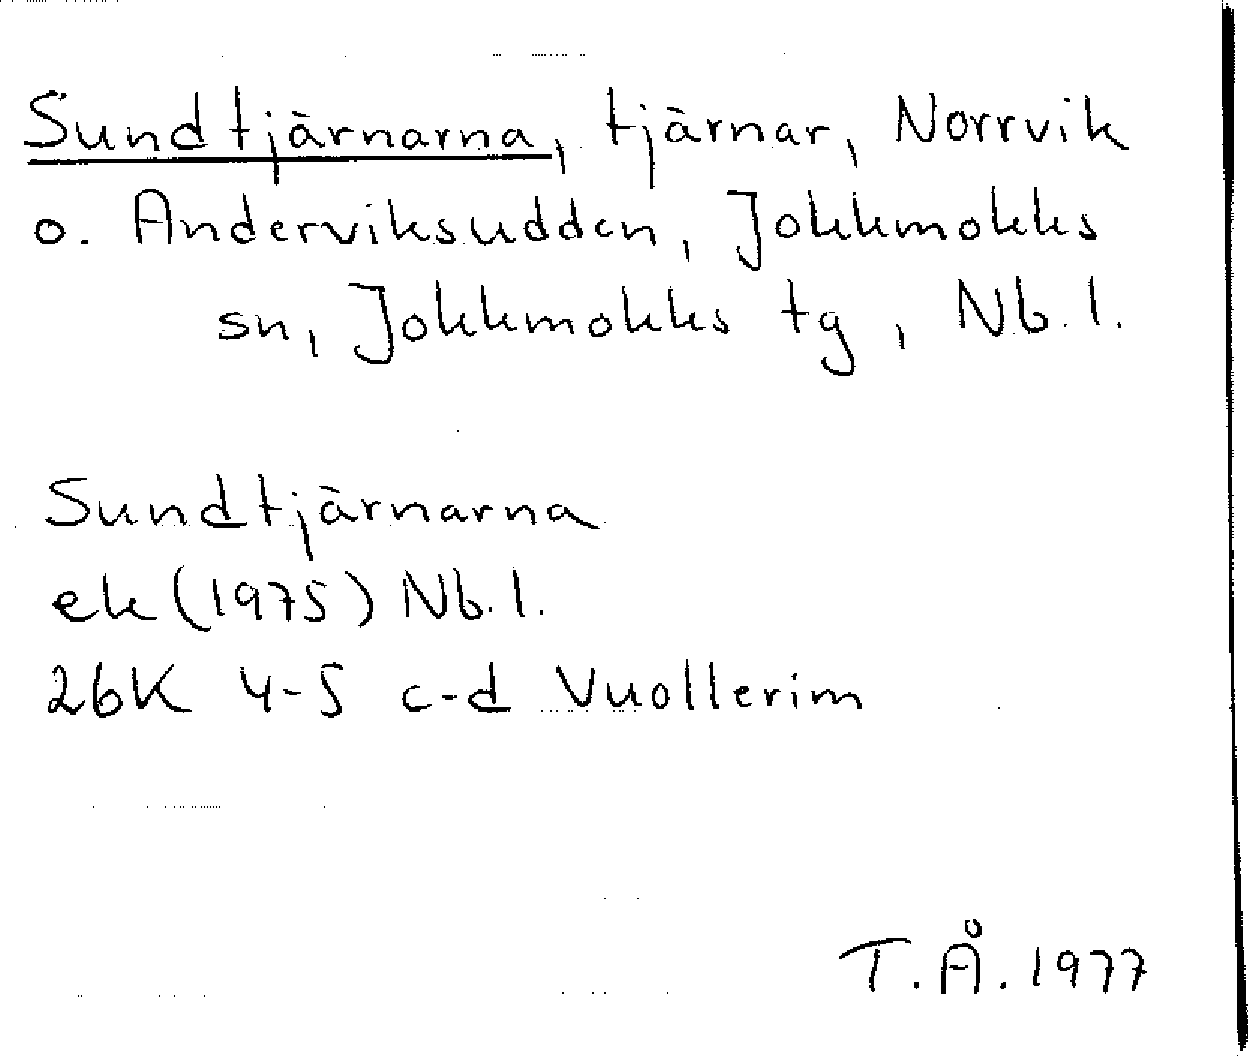 Sundtjärnarna, tjärnar, Norrvik
o. Anderviksudden, Jokkmokks
sn, Jokkmokks tg, Nb. l.
Sundtjärnarna
ek (1975) Nb. l.
26K 4-5 c-d Vuollerim
T.Å. 1977